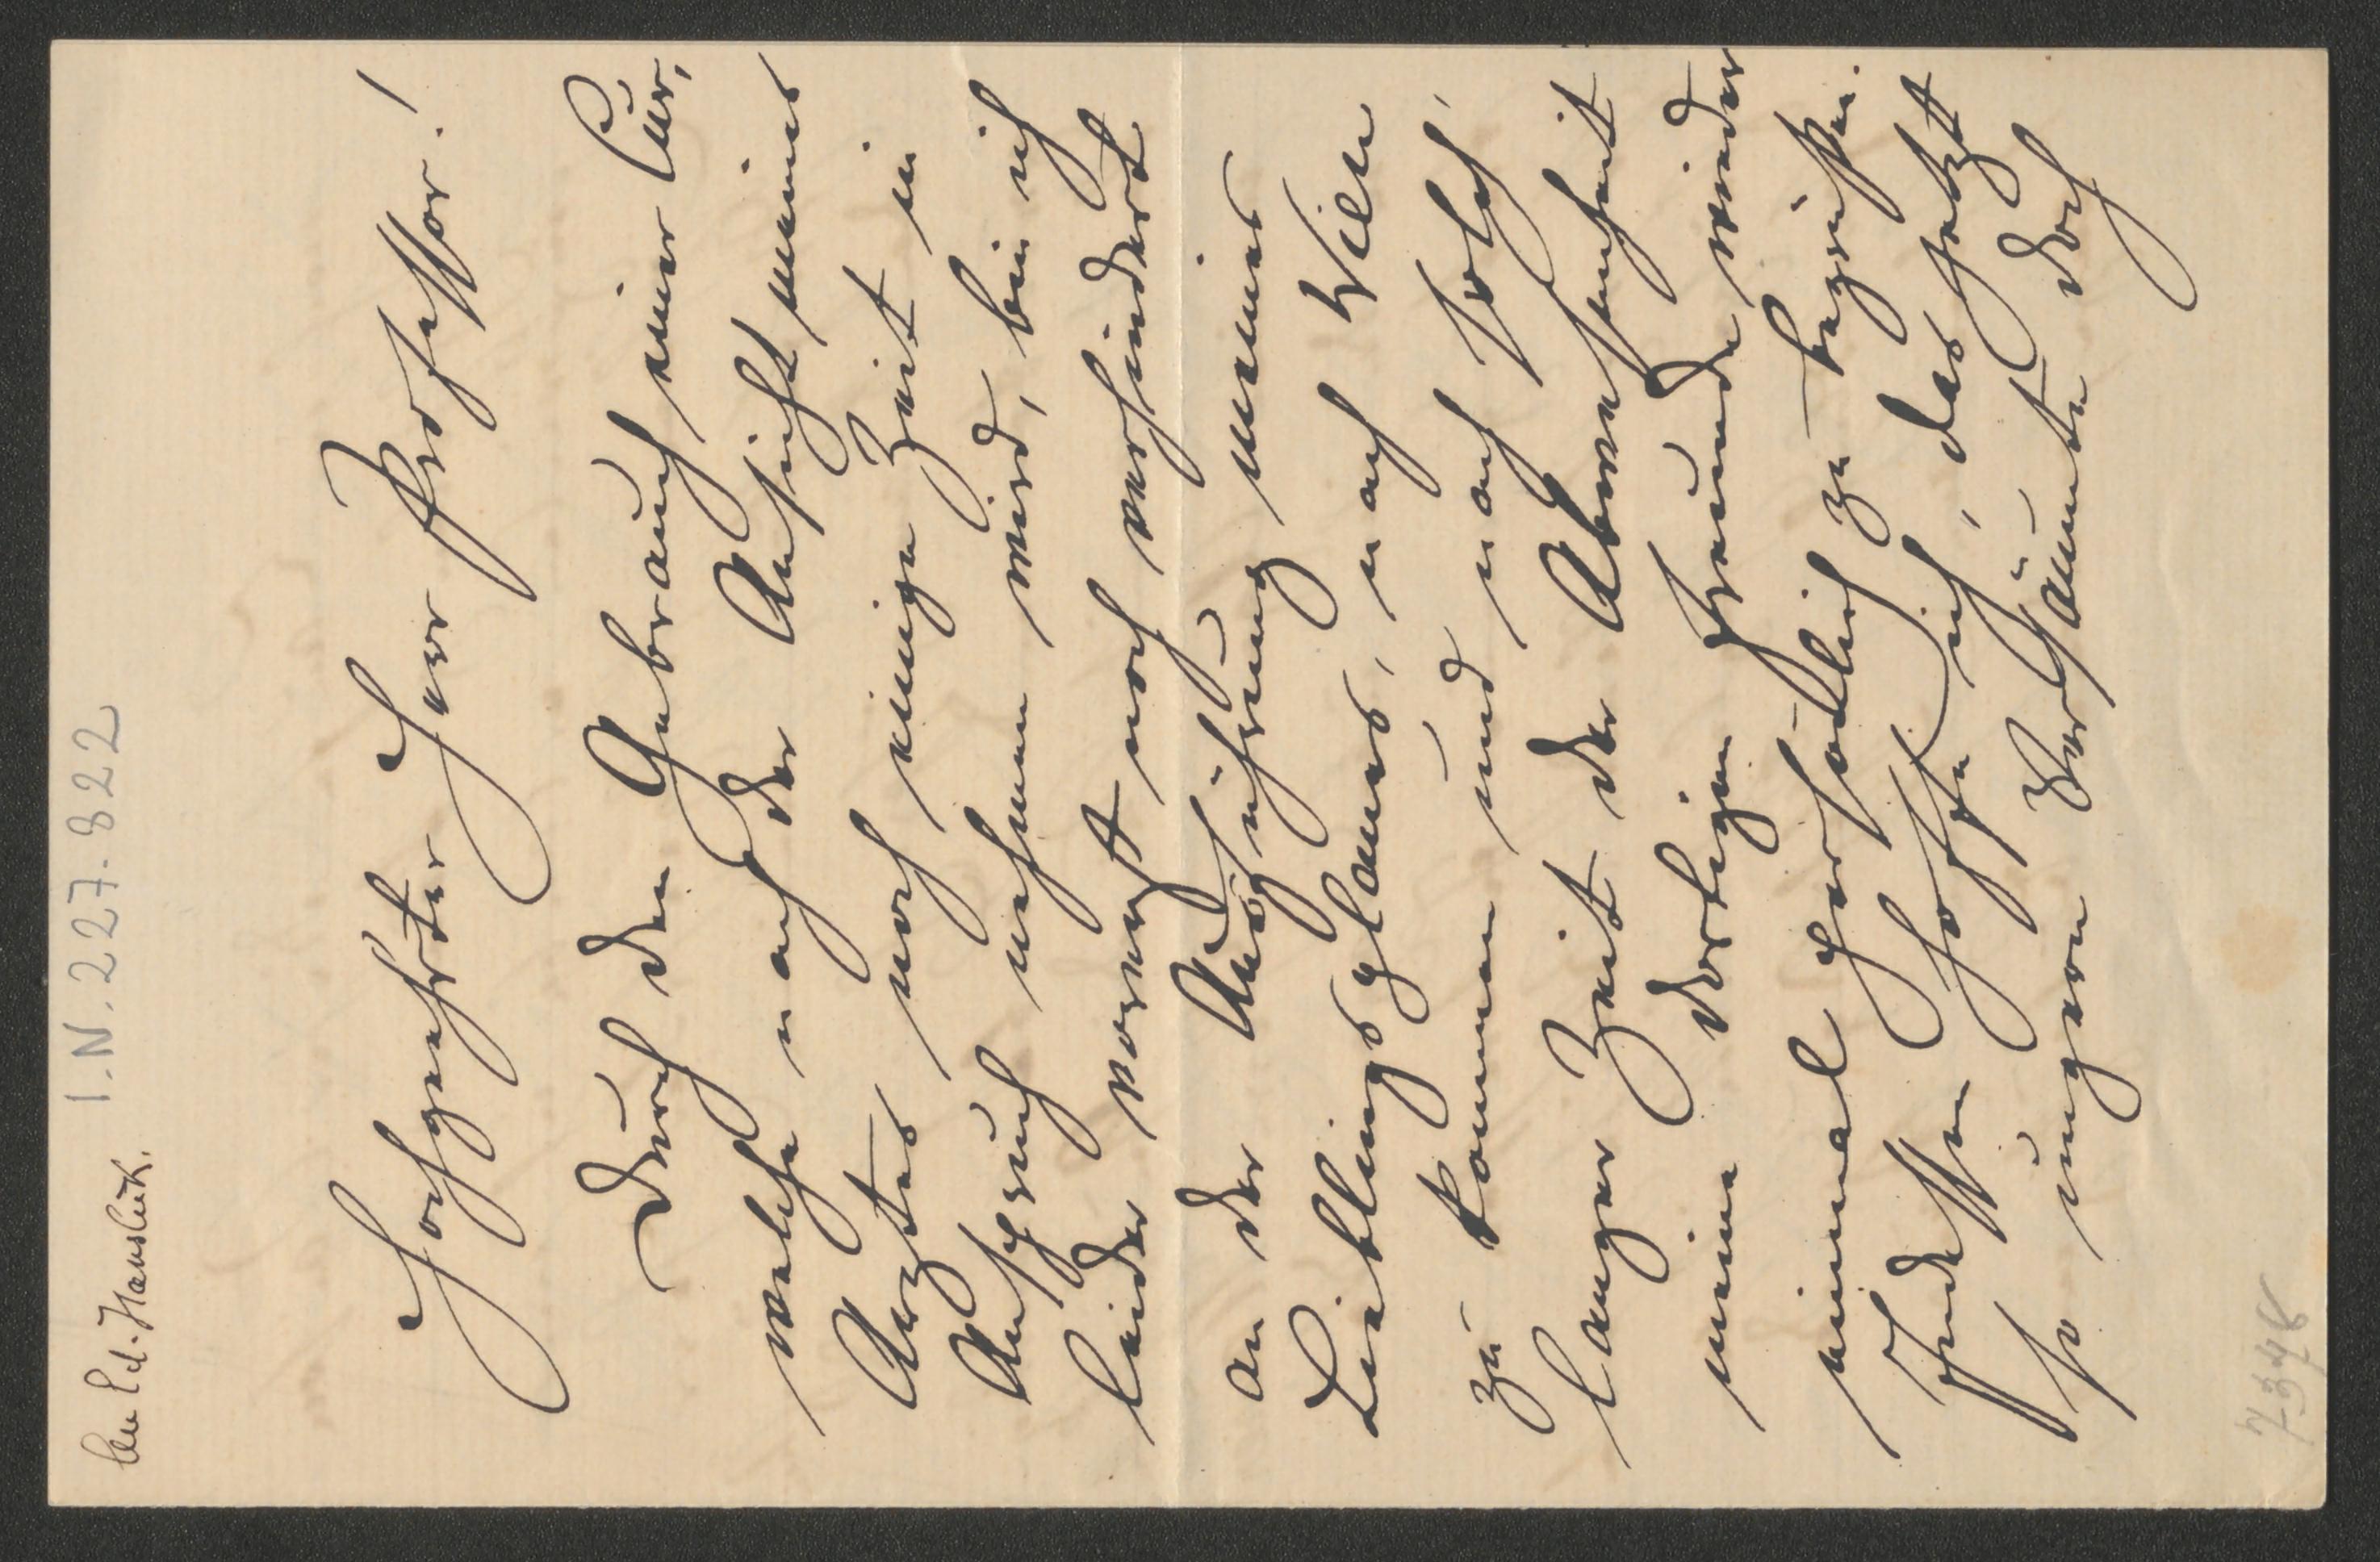 An Ed. Hanslick. I.N. 227.822
Hochgeehrter Herr Professor!
Durch den Gebrauch einer Cur,
welche nach der Ansicht meines
Arztes noch einige Zeit in
Anspruch nehmen wird, bin ich
leider vorerst noch verhindert
an der Ausführung meines
Lieblingsplanes, nach Wien
zu kommen und nach solch'
langer Zeit der Abwesenheit
meine dortigen Freunde wieder
einmal persönlich zu begrüßen.
Indessen hoffe ich, das jetzt
so ungern Versäumte doch
7346